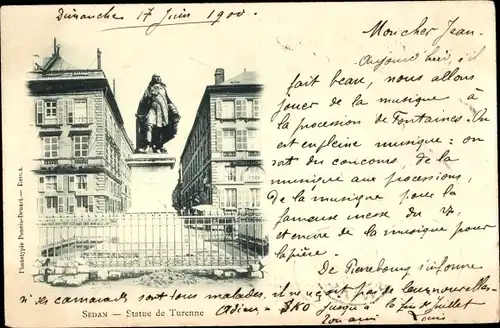 Dimanche 17 Juin 1900.
Mon cher Jean-
Aujourd'hui, il
fait beau, nous allons
jouer de la musique à
la procession de Fontaines. On
est en pleine musique: on
sort du concours, de la
musique aux processions,
de la musique pour la
fameuse messe du
et encore de la musique pour
la
De s'informe
si ses camarades sont tous malades, il ne reçoit pas de leurs nouvelles
Adieu - jusqu'à la fin de Juillet
Louis
Phototypie Ponsin-Druart. —
SEDAN — Statue de Turenne